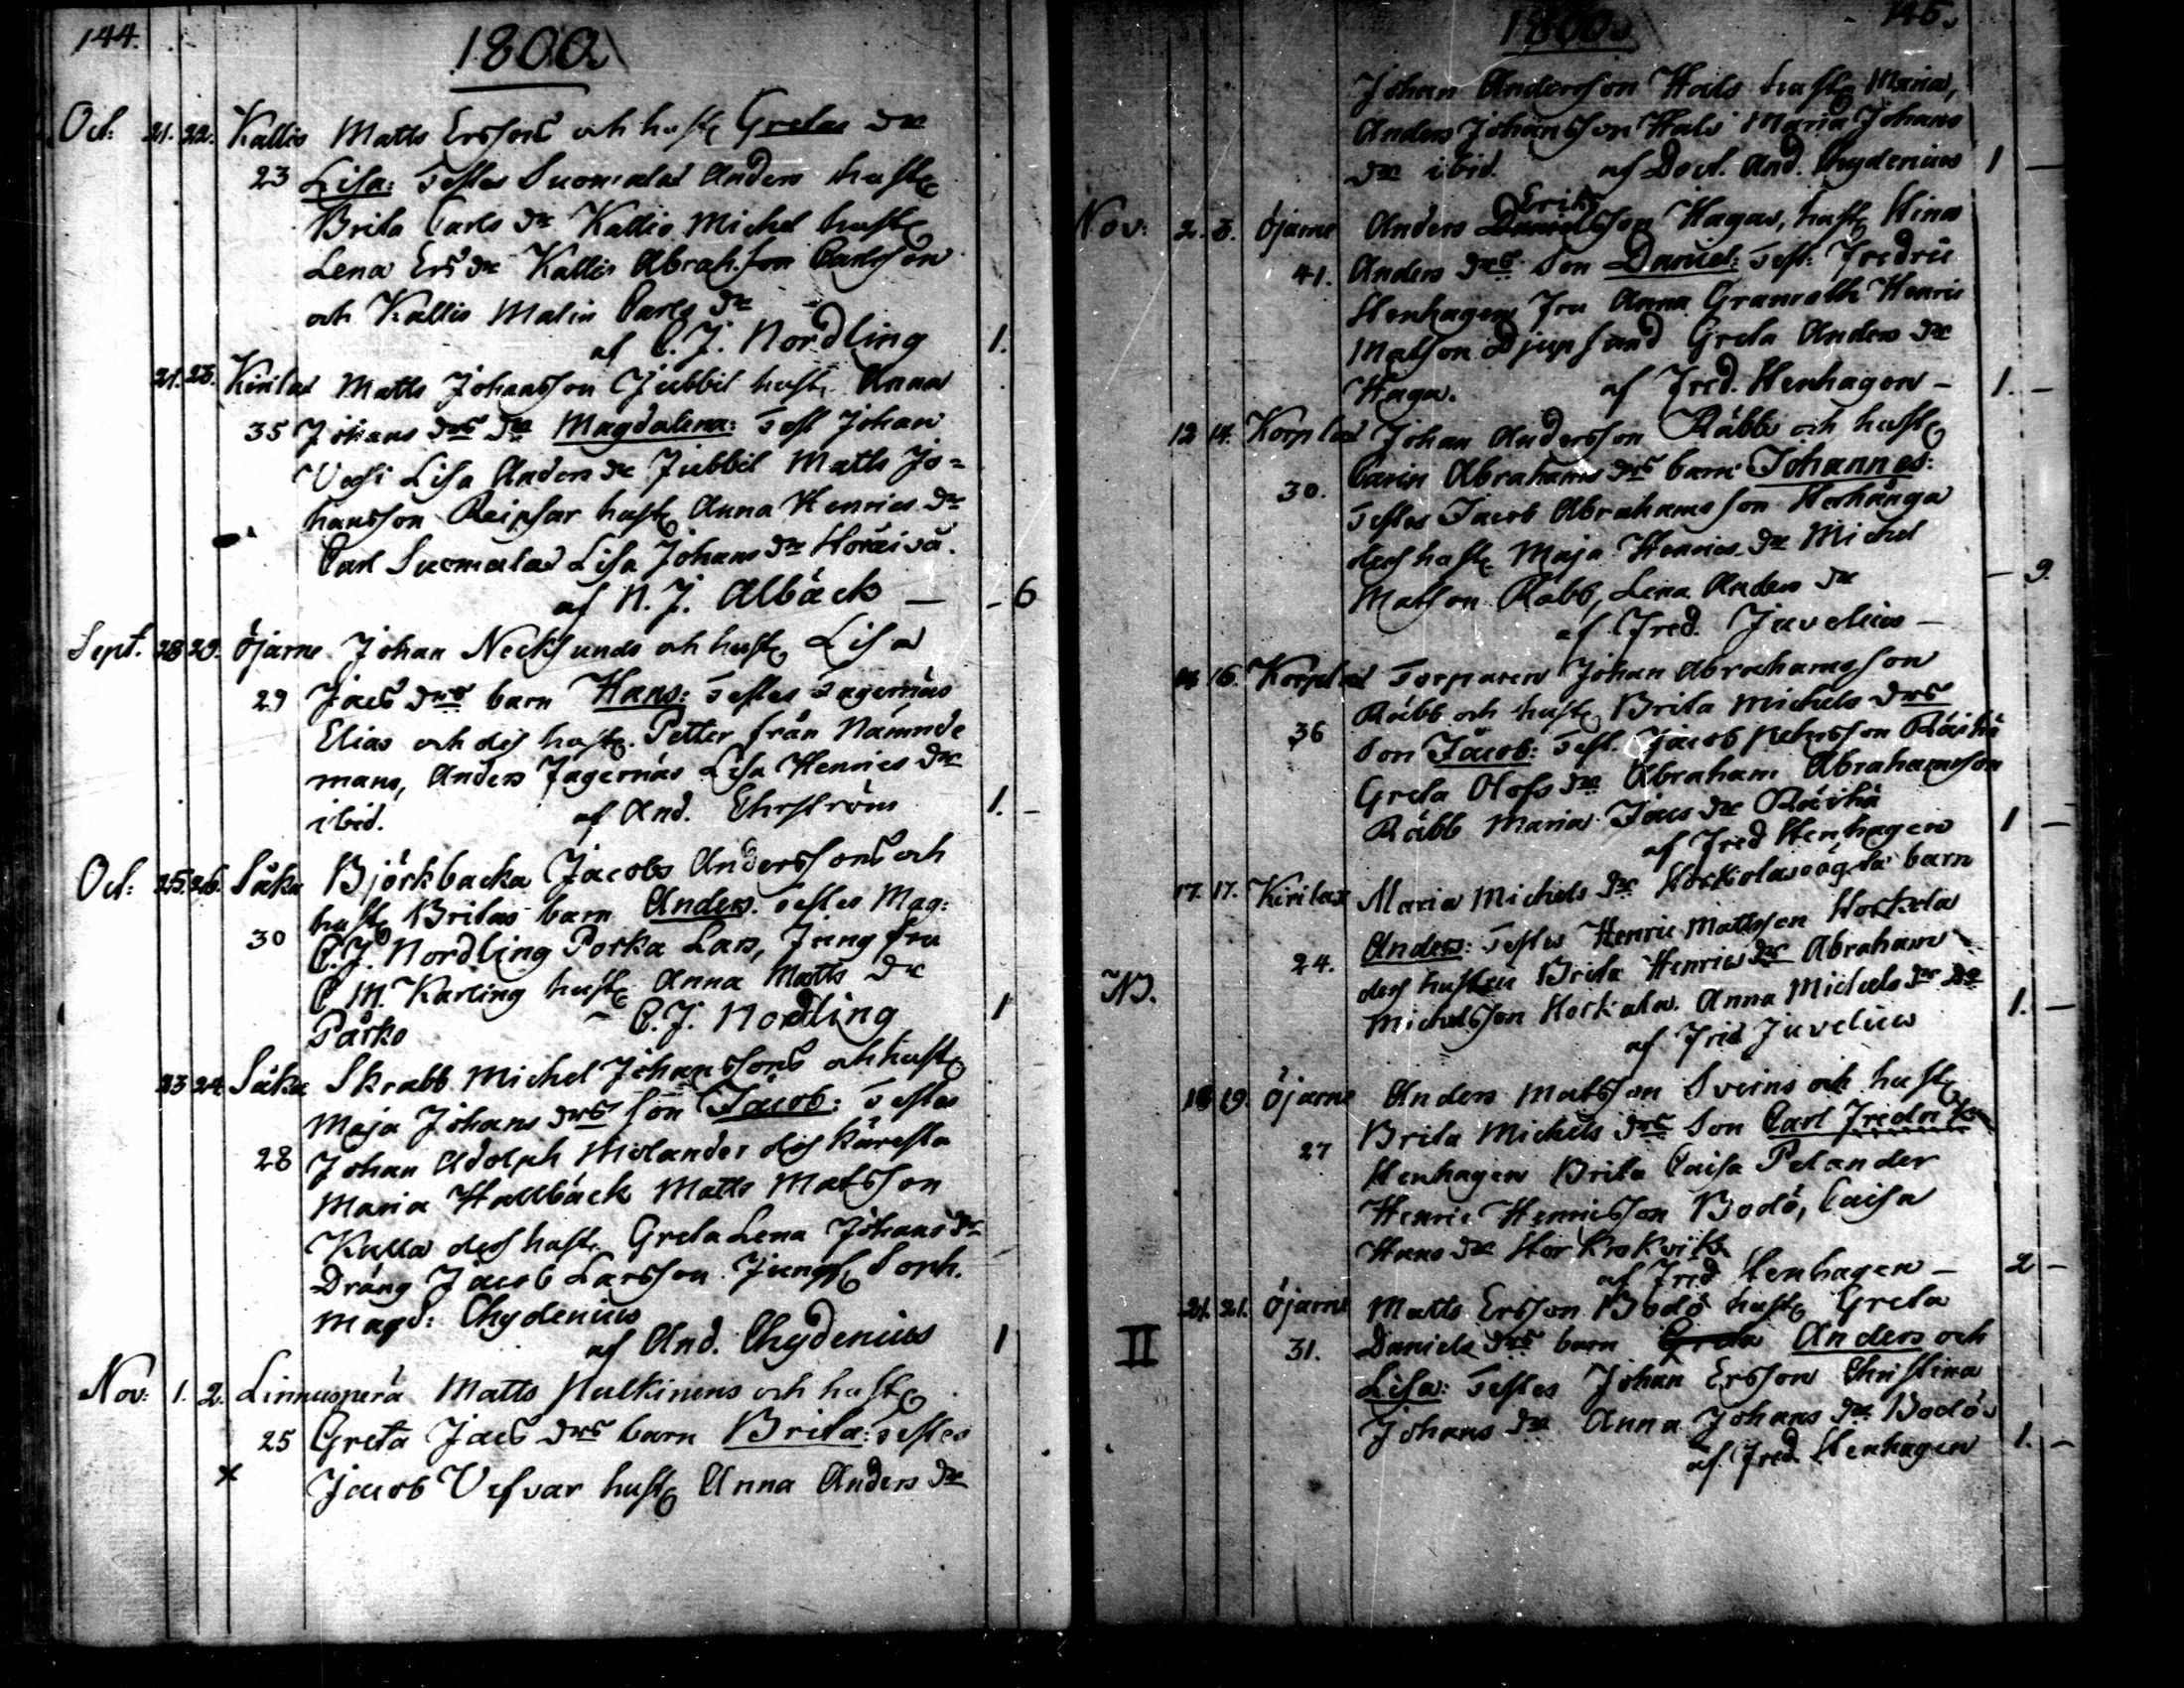 144.
1800
Oct: 21. 22. Kallis Matts Ersons och hust. Gretas dr
23 Lisa: Testes Suomalas Anders hust.
Brita Carls dr Kallis Michel hust.
Lena Ers dr Kallis Abrah. son Carlsson
och Kallis Malin Carls dr
af C. J. Nordling 1.
21. 23. Kirilax Matts Johansson Jubbil hust. Anna
35 Johans drs dr Magdalena: Test Johan
Lisa Anders dr Jubbil Matts Jo=
hansson Reipsar hust. Anna Henrics dr
Carl Suomalas Lisa Johans dr
af N. J. Albäck — - 6
Sept. 28 29. Öjarne Johan Necksunds och hust. Lisa
29 Jacs drs barn Hans: Testes Fagernäs
Elias och des hust. Petter från Nämnde
mans, Anders Fagernäs Lisa Henrics dr
ibid. af And. Ehrström 1. -
Oct: 25. 26. Såka Björkbacka Jacobs Anderssons och
hust. Britas barn Anders. Testes Mag:
30 C. J. Nordling Porka Lars, Jungfru
C. M. Karling hust. Anna Matts dr
Pårko - C. J. Nordling 1
23 24 Såka Skrabb Michel Johanssons och hust.
Maja Johans drs son Jacob: Testes
28 Johan Adolph Melander des Käresta
Maria Hallbäck Matts Matsson
Kulla des hust. Greta Lena Johans dr
Dräng Jacob Larsson Jungf. Soph.
Magd: Chydenius
af And. Chydenius 1
Nov: 1. 2. Linnusperä Matts Hulkinens och hust.
25 Greta Jacs drs barn Brita: Testes
x Jacob Vesvar hust. Anna Anders dr
1800.
145.
Johan Andersson Hals hust. Maria,
Anders Johansson Hals Maria Johans
dr ibid. af Doct. And. Chydenius 1 —
Eriks
Nov: 2. 3. Öjarne Anders Danielsson Hagas, hust. Stina
41. Anders drs Son Daniel: Test: Fredric
Stenhagen Fru Anna Granroth Henric
Matson Djupsund Greta Anders dr
Haga. af Fred. Stenhagen - 1. -
12 14. Korplax Johan Andersson Räbbs och hust.
Carin Abrahams drs barn Johannes:
30. Testes Jacob Abrahamsson Storhånga
des hust. Maja Henrics dr Michel
Matson Rabb, Lena Anders dr — 9.
af Fred. Juvelius —
16. Korplax Torparen Johan Abrahamsson
Räbb och hust. Brita Michels drs
36 Son Jacob: Test. Jacob Räihä
Greta Olofs dr Abraham Abrahamsson
Räbb Maria Jacs dr Räihä
af Fred Stenhagen 1 —
17. 17. Kirilax Maria Michels dr barn
24. Anders: Testes Henric Mattsson Storkola
des hustru Brita Henrics dr Abraham
NB. Michelsson Anna Michels dr
af Fred Juvelius 1. —
18 19. Öjarne Anders Matsson Sveins och hust.
27 Brita Michels drs Son Carl Fredrik
Stenhagen Brita Caisa Pelander
Henric Henricsson Bodö, Caisa
Hans dr Stor Krokvik
af Fred Stenhagen — 2 -
21. 21. Öjarne Matts Ersson Bodö hust. Greta
II 31. Daniels drs barn Greta Anders och
Lisa: Testes Johan Ersson Christina
Johans dr Anna Johans dr Bodö
af Fred. Stenhagen 1. —